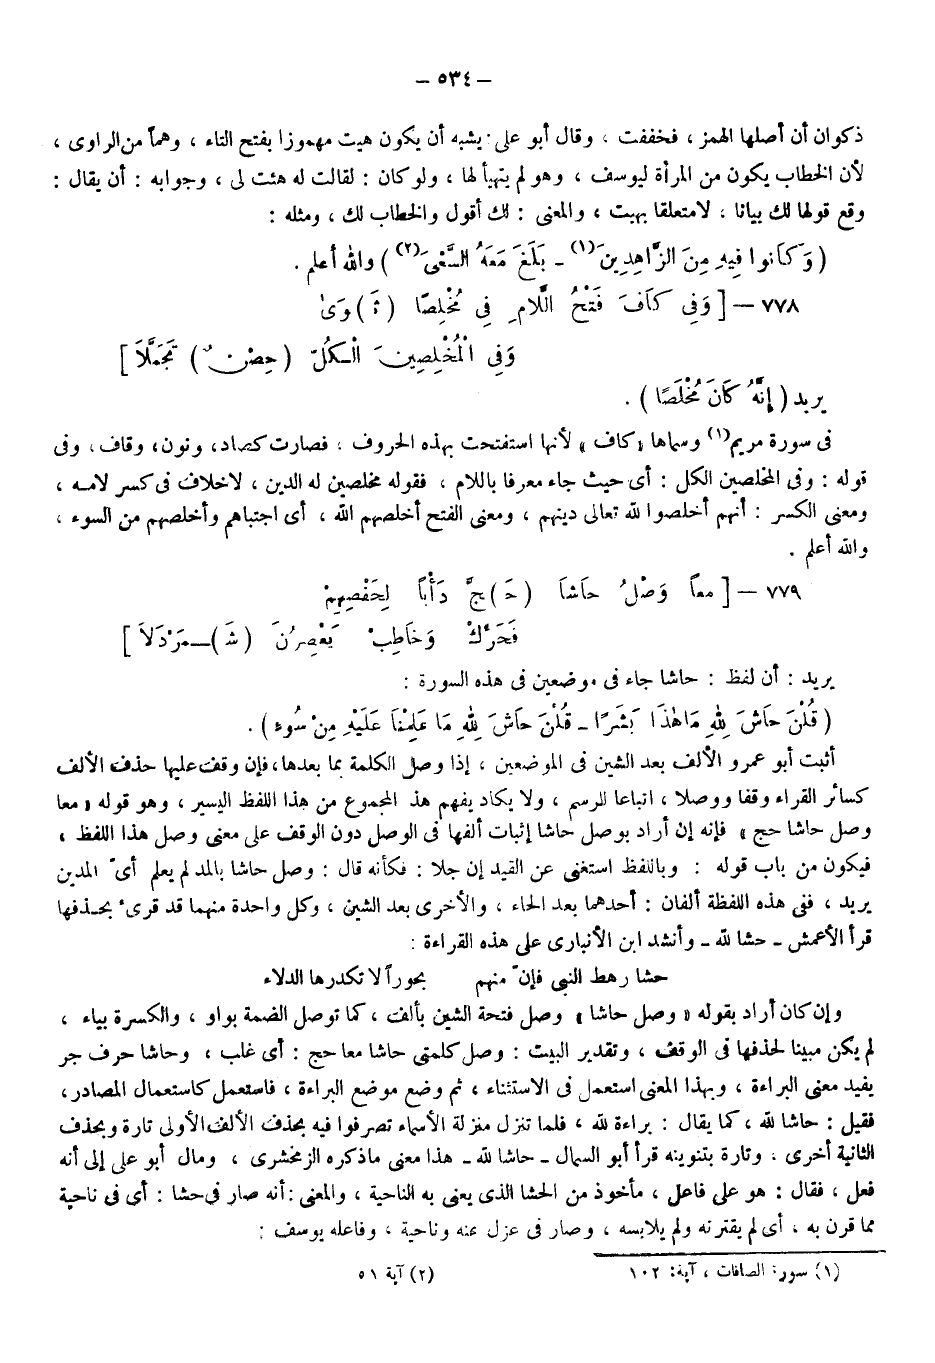 — ٥٣٤ —
ذكوان أن أصلها الهمز ، فخففت ، وقال أبو على : يشبه أن يكون هيت مهموزا بفتح التاء ، وهماً من الراوى ،
لأن الخطاب يكون من المرأة ليوسف ، وهو لم يتهيأ لها ، ولو كان : لقالت له هئت لى ، وجوابه : أن يقال :
وقع قولها لك بيانا ، لا متعلقا بهيت ، والمعنى : لك أقول والخطاب لك ، ومثله :
( وَكَانوا فِيهِ مِنَ الزَّاهِدِينَ(١) ـ بَلَغَ مَعَهُ السَّعْىَ(٢) ) والله أعلم .
٧٧٨ — [ وَفِى كَافَ فَتْحُ اللَّامِ فِى مُخْلِصًا (ثَـ)وَىٰ
وَفِى الْمُخْلِصِينَ الْكُلُّ (حِصْنٌ) تَجَمَّلَا ]
يريد ( إِنَّهُ كَانَ مُخْلَصًا ) .
فى سورة مريم(١) وسماها « كاف » لأنها استفتحت بهذه الحروف ، فصارت كصاد، ونون، وقاف، وفى
قوله : وفى المخلصين الكل : أى حيث جاء معرفا باللام ، فقوله مخلصين له الدين ، لا خلاف فى كسر لامه ،
ومعنى الكسر : أنهم أخلصوا لله تعالى دينهم ، ومعنى الفتح أخلصهم الله ، أى اجتباهم وأخلصهم من السوء ،
والله أعلم .
٧٧٩ — [ معاً وَصْلُ حَاشَا (حَـ)جَّ دَأْباً لِحَفْصِهِمْ
فَحَرِّكْ وَخَاطِبْ يَعْصِرُنَ (شَـ)ـمَرْدَلَا ]
يريد : أن لفظ : حاشا جاء فى موضعين فى هذه السورة :
( قُلْنَ حَاشَ لِلهِ مَا هٰذَا بَشَرًا ـ قُلْنَ حَاشَ لِلهِ مَا عَلِمْنَا عَلَيْهِ مِنْ سُوءٍ ) .
أثبت أبو عمرو الألف بعد الشين فى الموضعين ، إذا وصل الكلمة بما بعدها، فإن وقف عليها حذف الألف
كسائر القراء وقفا ووصلا ، اتباعا للرسم ، ولا يكاد يفهم هذ المجموع من هذا اللفظ اليسير ، وهو قوله « معا
وصل حاشا حج » فإنه إن أراد بوصل حاشا إثبات ألفها فى الوصل دون الوقف على معنى وصل هذا اللفظ ،
فيكون من باب قوله : وباللفظ استغنى عن القيد إن جلا : فكأنه قال : وصل حاشا بالمد لم يعلم أىّ المدين
يريد ، ففى هذه اللفظة ألفان : أحدهما بعد الحاء ، والأخرى بعد الشين ، وكل واحدة منهما قد قرىء بحذفها
قرأ الأعمش ـ حشا لله ـ وأنشد ابن الأنبارى على هذه القراءة :
حشا رهط النبى فإنّ منهم بحوراً لا تكدرها الدلاء
وإن كان أراد بقوله « وصل حاشا » وصل فتحة الشين بألف ، كما توصل الضمة بواو ، والكسرة بياء ،
لم يكن مبينا لحذفها فى الوقف ، وتقدير البيت : وصل كلمتى حاشا معا حج : أى غلب ، وحاشا حرف جر
يفيد معنى البراءة ، وبهذا المعنى استعمل فى الاستثناء ، ثم وضع موضع البراءة ، فاستعمل كاستعمال المصادر،
فقيل : حاشا لله ، كما يقال : براءة لله ، فلما تنزل منزلة الأسماء تصرفوا فيه بحذف الألف الأولى تارة وبحذف
الثانية أخرى ، وتارة بتنوينه قرأ أبو السمال ـ حاشا لله ـ هذا معنى ماذكره الزمخشرى ، ومال أبو على إلى أنه
فعل ، فقال : هو على فاعل ، مأخوذ من الحشا الذى يعنى به الناحية ، والمعنى : أنه صار فى حشا : أى فى ناحية
مما قرن به ، أى لم يقترنه ولم يلابسه ، وصار فى عزل عنه وناحية ، وفاعله يوسف :
(١) سورة الصافات ، آية: ١٠٢ (٢) آية ٥١